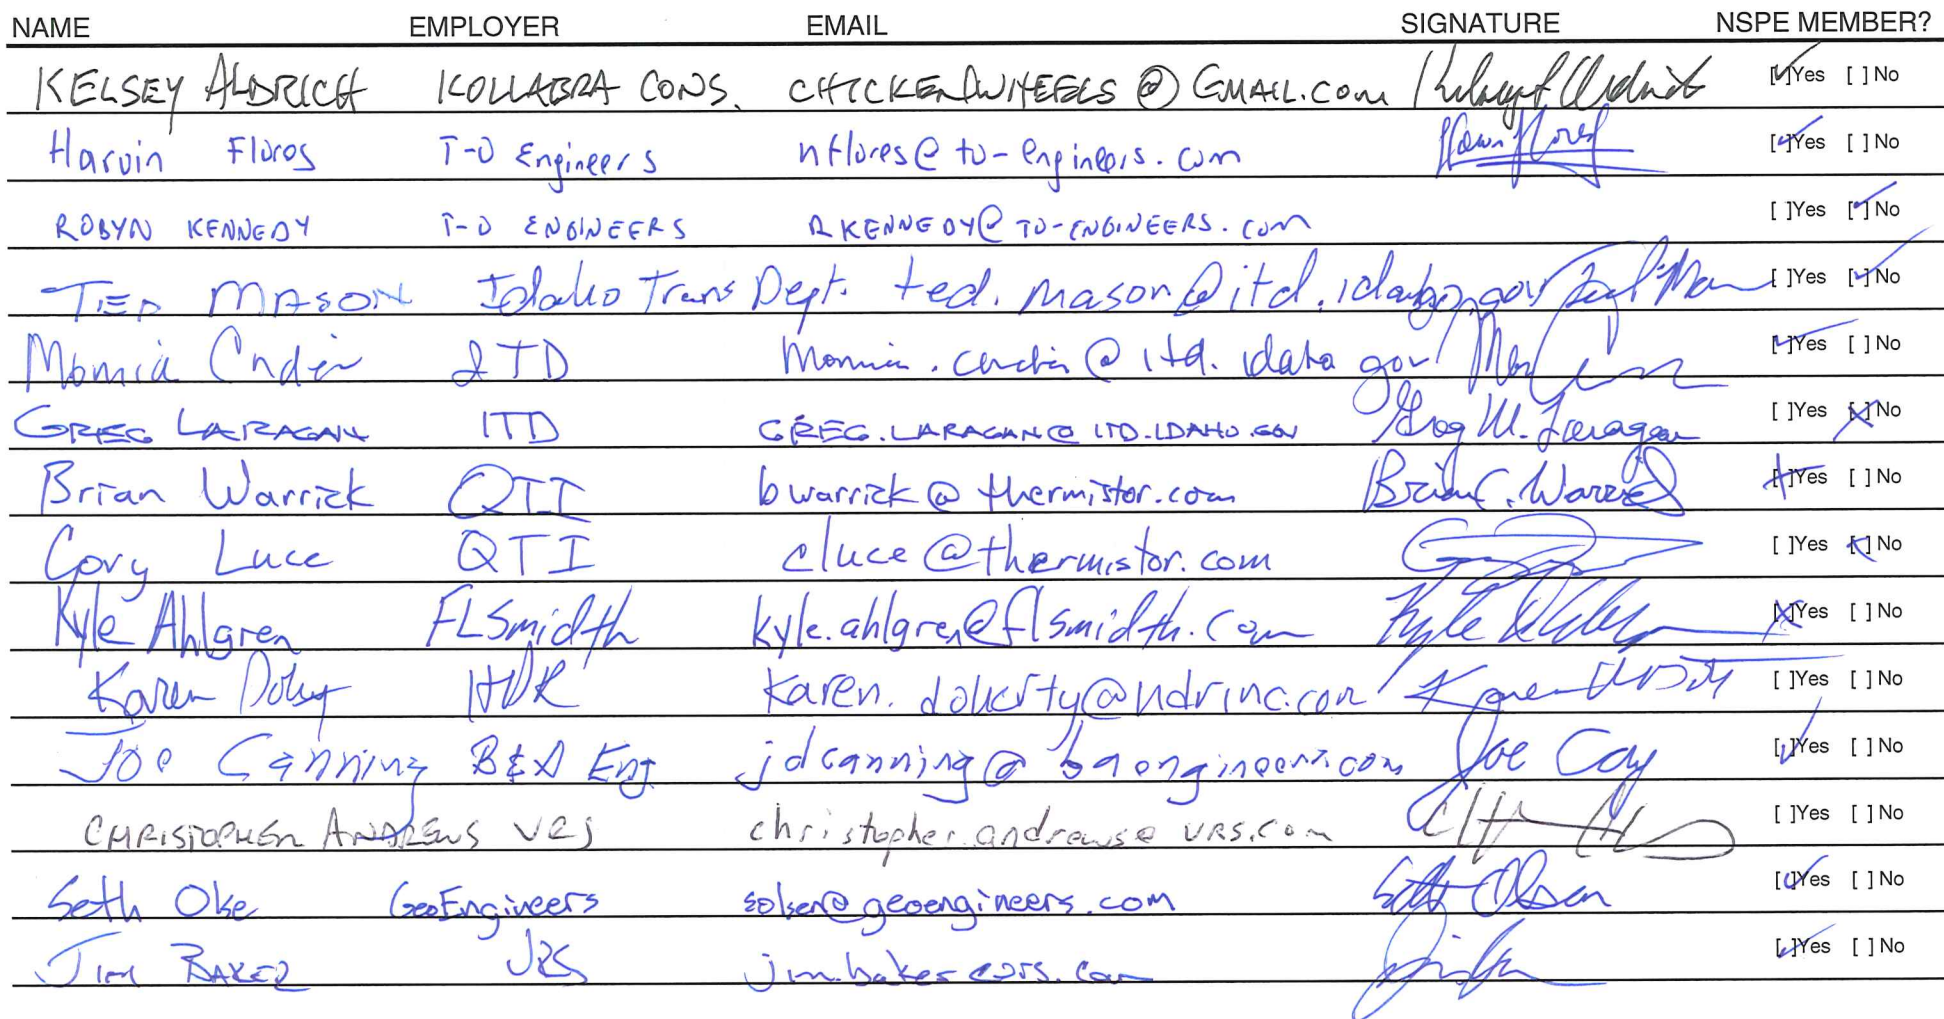 NAME EMPLOYER EMAIL SIGNATURE NSPE MEMBER?
KELSEY ALDRICH KOLLABRA CONS. CHICKENAWHEELS @ GMAIL.COM [ ]Yes [ ] No
Harvin Flores T-O Engineers nflores@to-engineers.com [ ]Yes [ ] No
ROBYN KENNEDY T-O ENGINEERS RKENNEDY@TO-ENGINEERS.COM [ ]Yes [ ] No
TED MASON Idaho Trans Dept. ted.mason@itd.idaho.gov [ ]Yes [ ] No
ITD @itd.idaho gov [ ]Yes [ ] No
GREG LARAGAN ITD GREG.LARAGAN@ITD.IDAHO.GOV Greg M. Laragan [ ]Yes [ ] No
Brian Warrick QTI bwarrick@thermistor.com Brian C. Warrick [ ]Yes [ ] No
Cory Luce QTI cluce@thermistor.com [ ]Yes [ ] No
Kyle Ahlgren FLSmidth kyle.ahlgren@flsmidth.com Kyle [ ]Yes [ ] No
Karen HDR karen.doherty@hdrinc.com Karen [ ]Yes [ ] No
Joe Canning B&A Eng jdcanning@baengineers.com Joe [ ]Yes [ ] No
CHRISTOPHER ANDREWS URS christopher.andrews@urs.com [ ]Yes [ ] No
Seth Olse GeoEngineers solsen@geoengineers.com Seth Olsen [ ]Yes [ ] No
JIM BAKER URS jim.baker@urs.com [ ]Yes [ ] No